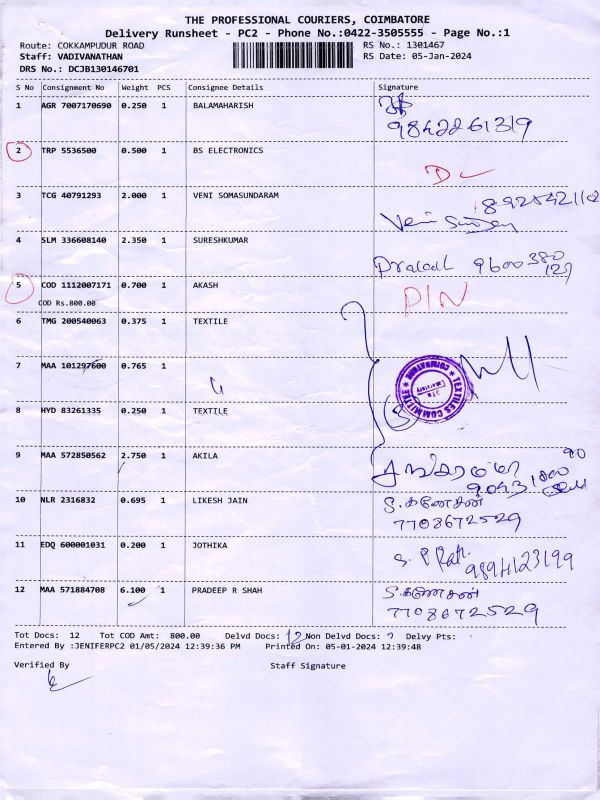 THE PROFESSIONAL COURIERS, COIMBATORE
Delivery Runsheet - PC2 - Phone No.:0422-3505555 - Page No.:1
Route: COKKAMPUDUR ROAD RS No.: 1301467
Staff: VADIVANATHAN RS Date: 05-Jan-2024
DRS No.: DCJB130146701
S No Consignment No Weight PCS Consignee Details Signature
1 AGR 7007170690 0.250 1 BALAMAHARISH
9842261319
2 TRP 5536500 0.500 1 BS ELECTRONICS
3 TCG 40791293 2.000 1 VENI SOMASUNDARAM
4 SLM 336608140 2.350 1 SURESHKUMAR
9600380
127
5 COD 1112007171 0.700 1 AKASH PIN
COD Rs.800.00
6 TMG 200540063 0.375 1 TEXTILE
7 MAA 101297600 0.765 1
TEXTILES COMMITTEE
COIMBATORE
8 HYD 83261335 0.250 1 TEXTILE
9 MAA 572850562 2.750 1 AKILA
10 NLR 2316832 0.695 1 LIKESH JAIN S.கணேசன்
7708672529
11 EDQ 600001031 0.200 1 JOTHIKA
9894123199
12 MAA 571884708 6.100 1 PRADEEP R SHAH S.கணேசன்
7708672529
Tot Docs: 12 Tot COD Amt: 800.00 Delvd Docs: 12 Non Delvd Docs: Delvy Pts:
Entered By :JENIFERPC2 01/05/2024 12:39:36 PM Printed On: 05-01-2024 12:39:48
Verified By Staff Signature